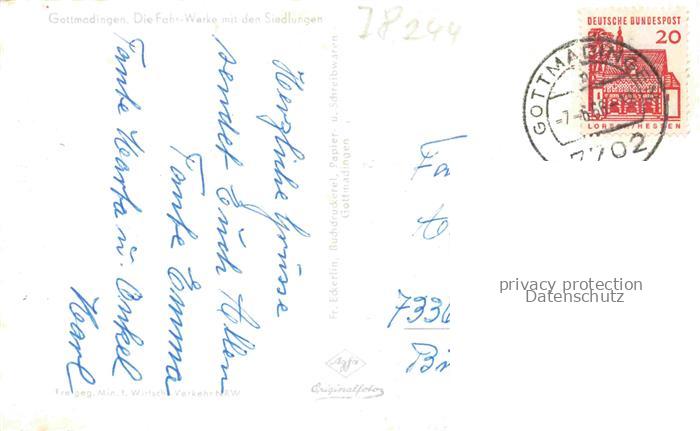 Gottmadingen. Die Fahr-Werke mit den Siedlungen
78244
DEUTSCHE BUNDESPOST
20
LORSCH/HESSEN
GOTTMADINGEN
7702
Herzliche Grüsse
sendet Euch Allen
Tante Emma
Tante Marta u. Onkel
Karl
Fr. Eckerlin, Buchdruckerei, Papier- u. Schreibwaren
Gottmadingen
Fa
7336
privacy protection
Datenschutz
Agfa
Originalfoto
Freigeg. Min. f. Wirtsch. Verkehr NRW